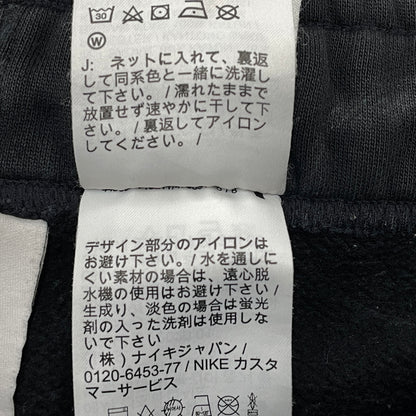 30
W
J: ネットに入れて、裏返
して同系色と一緒に洗濯し
て下さい。/ 濡れたままで
放置せず速やかに干して下
さい。/ 裏返してアイロン
してください。/
デザイン部分のアイロンは
お避け下さい。/ 水を通しに
くい素材の場合は、遠心脱
水機の使用はお避け下さい/
生成り、淡色の場合は蛍光
剤の入った洗剤は使用しな
いで下さい
(株) ナイキジャパン/
0120-6453-77 / NIKE カスタ
マーサービス